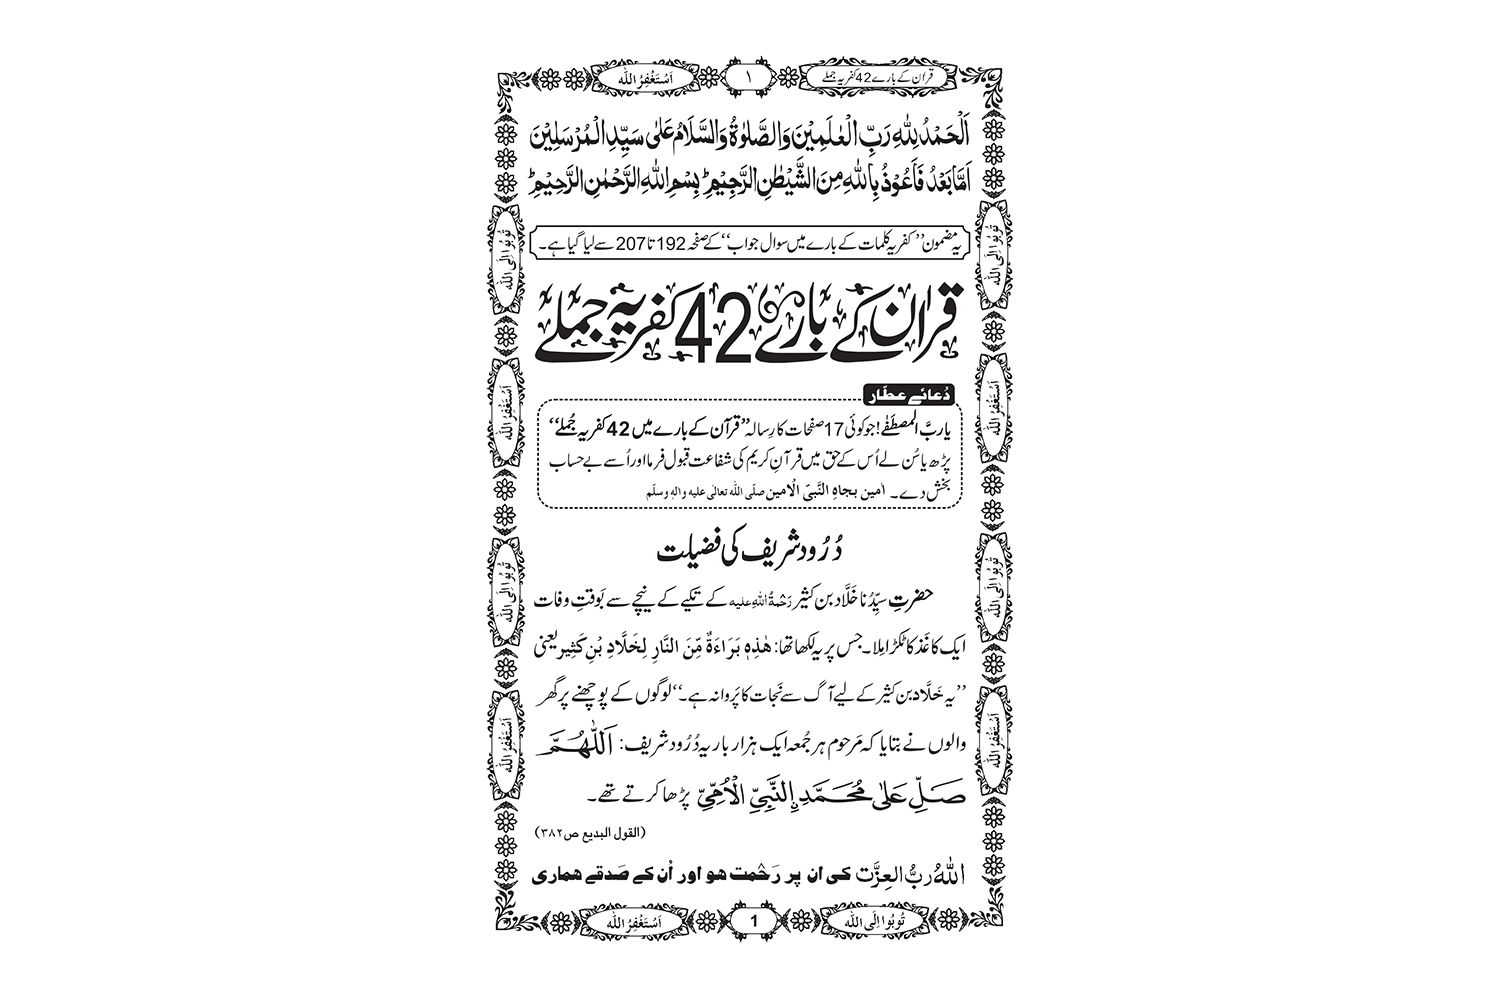 قران کے بارے 42 کفریہ جملے
۱
اَسْتَغْفِرُ اللّٰه
اَلْحَمْدُ لِلّٰهِ رَبِّ الْعٰلَمِيْنَ وَالصَّلٰوةُ وَالسَّلَامُ عَلٰى سَيِّدِ الْمُرْسَلِيْنَ
اَمَّا بَعْدُ فَاَعُوْذُ بِاللّٰهِ مِنَ الشَّيْطٰنِ الرَّجِيْمِ ؕ بِسْمِ اللّٰهِ الرَّحْمٰنِ الرَّحِيْمِ ؕ
یہ مضمون ’’کفریہ کلمات کے بارے میں سوال جواب‘‘ کے صفحہ 192 تا 207 سے لیا گیا ہے۔
قران کے بارے 42 کفریہ جملے
دُعائے عطّار
یا ربَّ المصطَفٰے! جو کوئی 17 صفحات کا رِسالہ ’’قرآن کے بارے میں 42 کفریہ جُملے‘‘
پڑھ یا سُن لے اُس کے حق میں قرآنِ کریم کی شفاعت قبول فرما اور اُسے بے حساب
بخش دے۔ امین بجاہِ النَّبیِّ الْامین صلَّی اللہ تعالٰی علیہ والہٖ وسلَّم
دُرُود شریف کی فضیلت
حضرتِ سیِّدُنا خَلَّاد بن کثیر رَحْمَةُ اللهِ علیه کے تکیے کے نیچے سے بَوقتِ وفات
ایک کاغذ کا ٹکڑا مِلا۔ جس پر یہ لکھا تھا: هٰذِهٖ بَرَاءَةٌ مِّنَ النَّارِ لِخَلَّادِ بْنِ كَثِير یعنی
’’یہ خَلَّاد بن کثیر کے لیے آگ سے نَجات کا پَروانہ ہے۔‘‘ لوگوں کے پوچھنے پر گھر
والوں نے بتایا کہ مَرحوم ہر جُمعہ ایک ہزار بار یہ دُرُود شریف: اَللّٰهُمَّ
صَلِّ عَلٰى مُحَمَّدِ ۣالنَّبِيِّ الْاُمِّيِّ پڑھا کرتے تھے۔
(القول البدیع ص۳۸۲)
اللّٰهُ رَبُّ الْعِزَّت کی ان پر رَحْمت هو اور اُن کے صَدقے هماری
تُوبُوا اِلَى اللّٰه
1
اَسْتَغْفِرُ اللّٰه
تُوبُوا اِلَى اللّٰه
اَسْتَغْفِرُ اللّٰه
تُوبُوا اِلَى اللّٰه
اَسْتَغْفِرُ اللّٰه
تُوبُوا اِلَى اللّٰه
اَسْتَغْفِرُ اللّٰه
تُوبُوا اِلَى اللّٰه
اَسْتَغْفِرُ اللّٰه